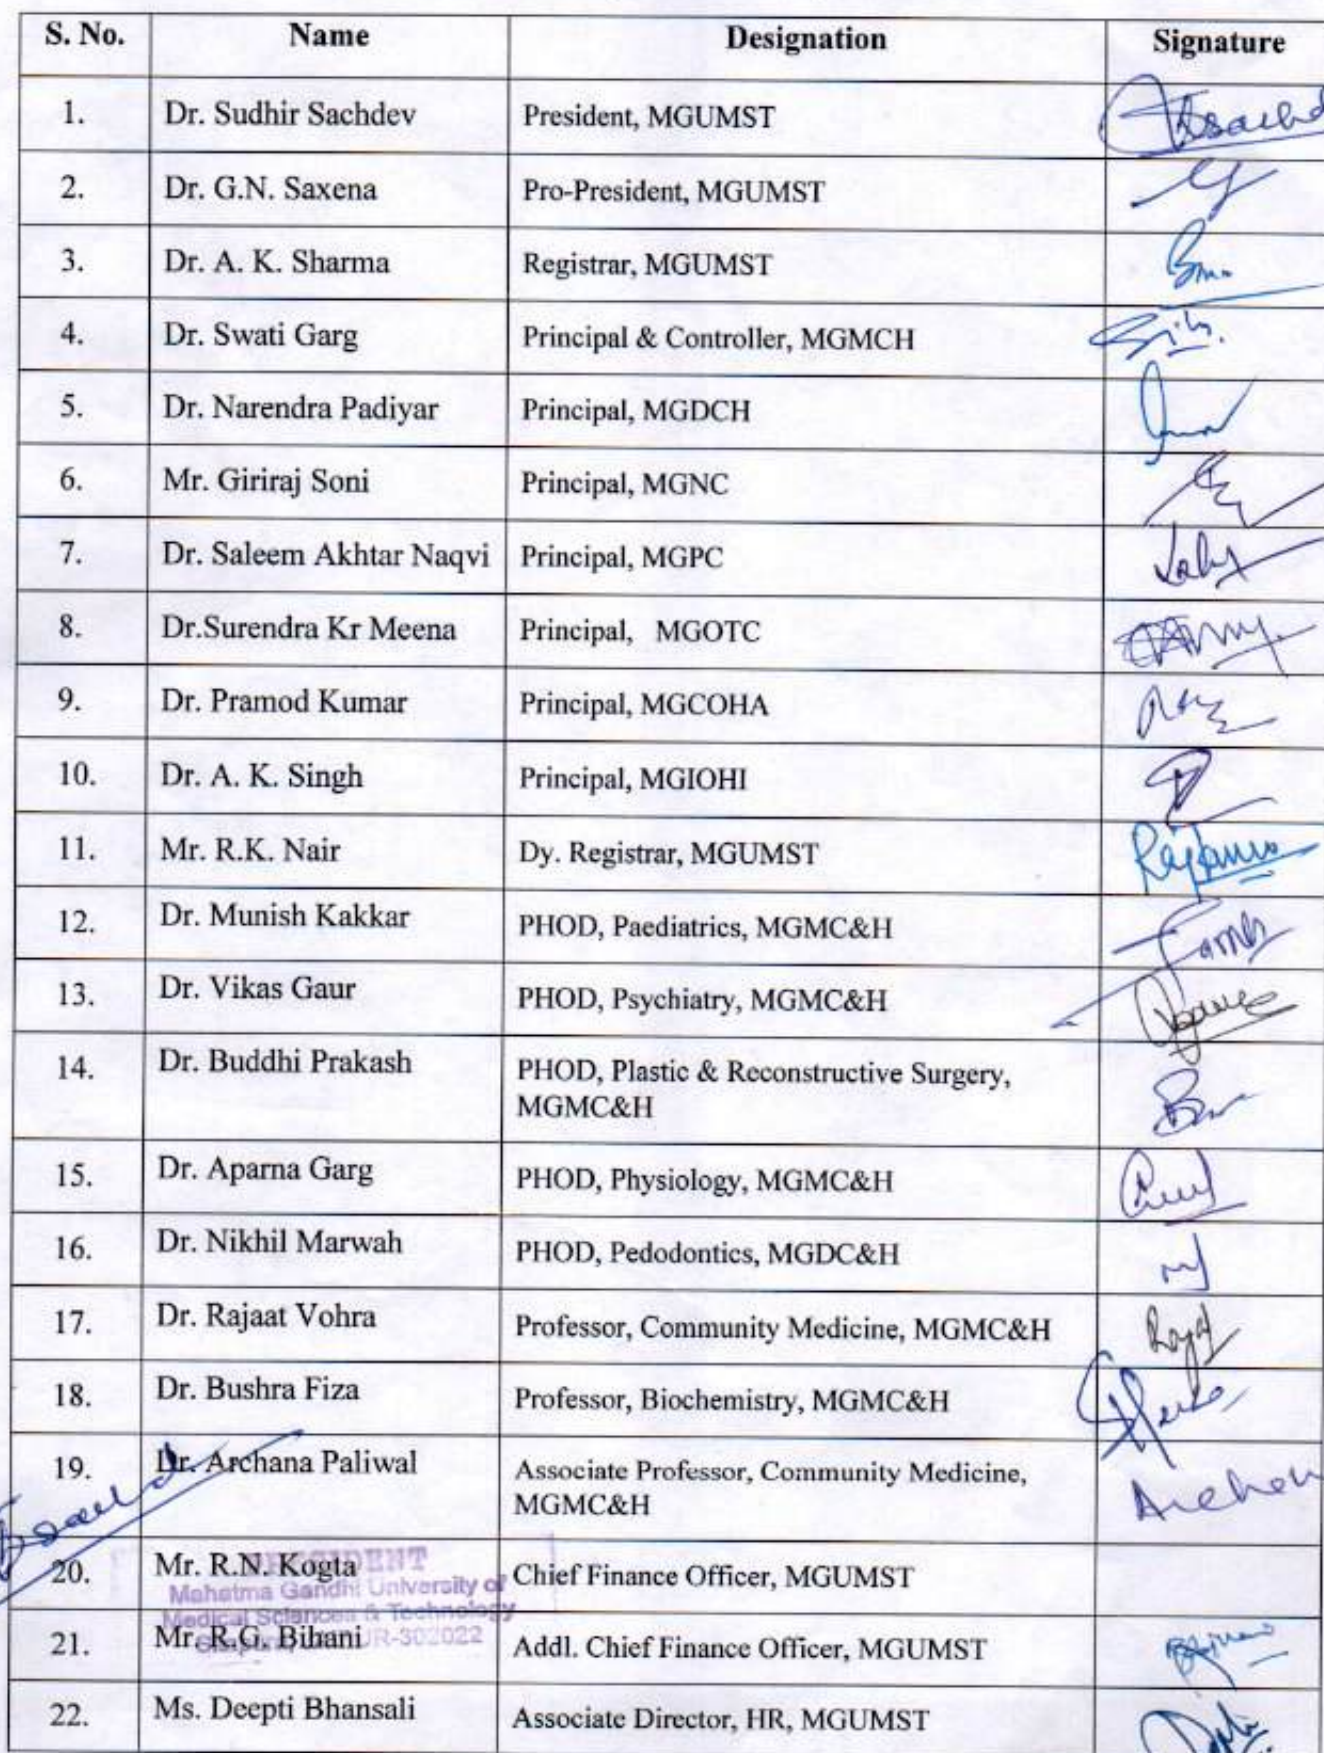 S. No. Name Designation Signature
1. Dr. Sudhir Sachdev President, MGUMST
2. Dr. G.N. Saxena Pro-President, MGUMST
3. Dr. A. K. Sharma Registrar, MGUMST
4. Dr. Swati Garg Principal & Controller, MGMCH
5. Dr. Narendra Padiyar Principal, MGDCH
6. Mr. Giriraj Soni Principal, MGNC
7. Dr. Saleem Akhtar Naqvi Principal, MGPC
8. Dr.Surendra Kr Meena Principal, MGOTC
9. Dr. Pramod Kumar Principal, MGCOHA
10. Dr. A. K. Singh Principal, MGIOHI
11. Mr. R.K. Nair Dy. Registrar, MGUMST
12. Dr. Munish Kakkar PHOD, Paediatrics, MGMC&H
13. Dr. Vikas Gaur PHOD, Psychiatry, MGMC&H
14. Dr. Buddhi Prakash PHOD, Plastic & Reconstructive Surgery,
MGMC&H
15. Dr. Aparna Garg PHOD, Physiology, MGMC&H
16. Dr. Nikhil Marwah PHOD, Pedodontics, MGDC&H
17. Dr. Rajaat Vohra Professor, Community Medicine, MGMC&H
18. Dr. Bushra Fiza Professor, Biochemistry, MGMC&H
19. Dr. Archana Paliwal Associate Professor, Community Medicine,
MGMC&H
PRESIDENT
20. Mr. R.N. Kogta Chief Finance Officer, MGUMST
Mahatma Gandhi University of
Medical Sciences & Technology
21. Mr. R.G. Bihani Addl. Chief Finance Officer, MGUMST
302022
22. Ms. Deepti Bhansali Associate Director, HR, MGUMST